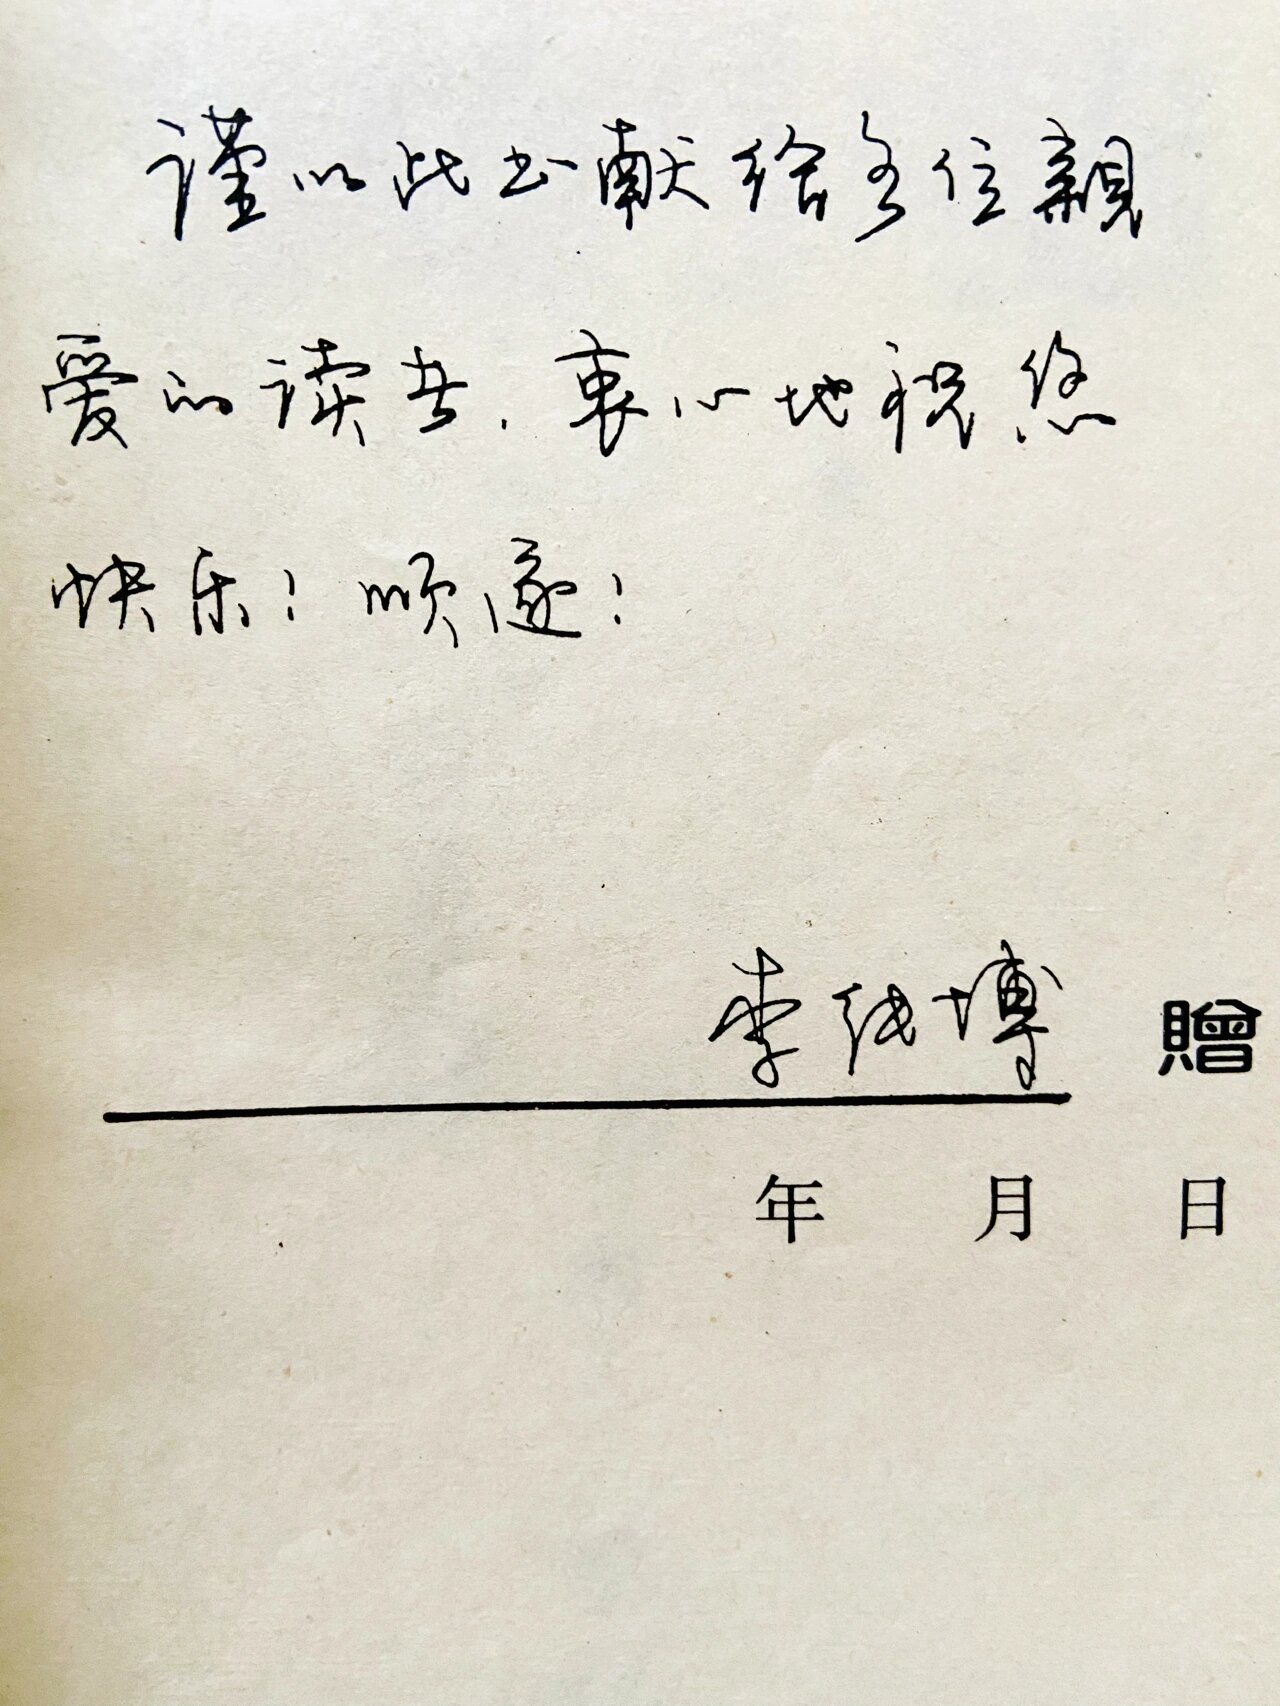 谨以此书献给各位親
爱的读者，衷心地祝您
快乐！顺遂！
李继博 贈
年 月 日